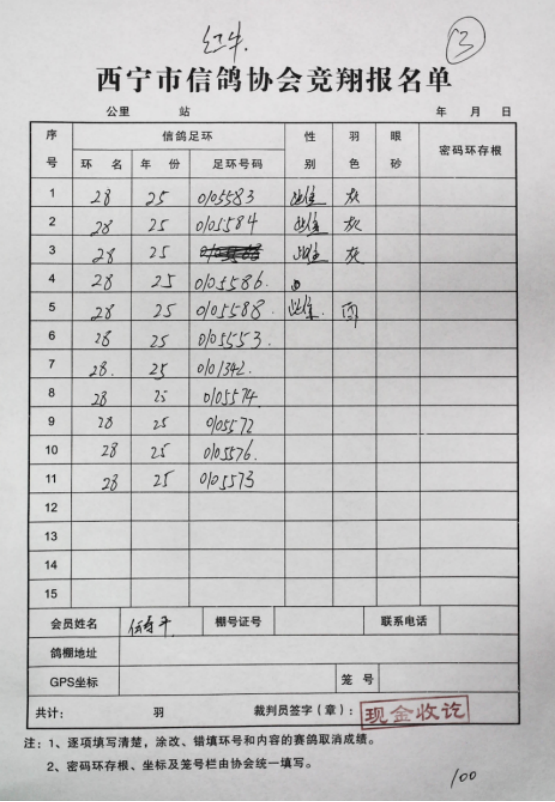 红牛.
3
西宁市信鸽协会竞翔报名单
公里 站 年 月 日
序号 信鸽足环 性别 羽色 眼砂 密码环存根
环 名 年 份 足环号码
1 28 25 0105583 雌 灰
2 28 25 0105584 雌 灰
3 28 25 雌 灰
4 28 25 0105586.
5 28 25 0105588 雌.
6 28 25 0105553.
7 28. 25 0101342.
8 28 25 0105574.
9 28 25 0105572
10 28 25 0105576.
11 28 25 0105573
12
13
14
15
会员姓名 棚号证号 联系电话
鸽棚地址
GPS坐标 笼 号
共计: 羽 裁判员签字(章): 现金收讫
注:1、逐项填写清楚,涂改、错填环号和内容的赛鸽取消成绩。
2、密码环存根、坐标及笼号栏由协会统一填写。
100